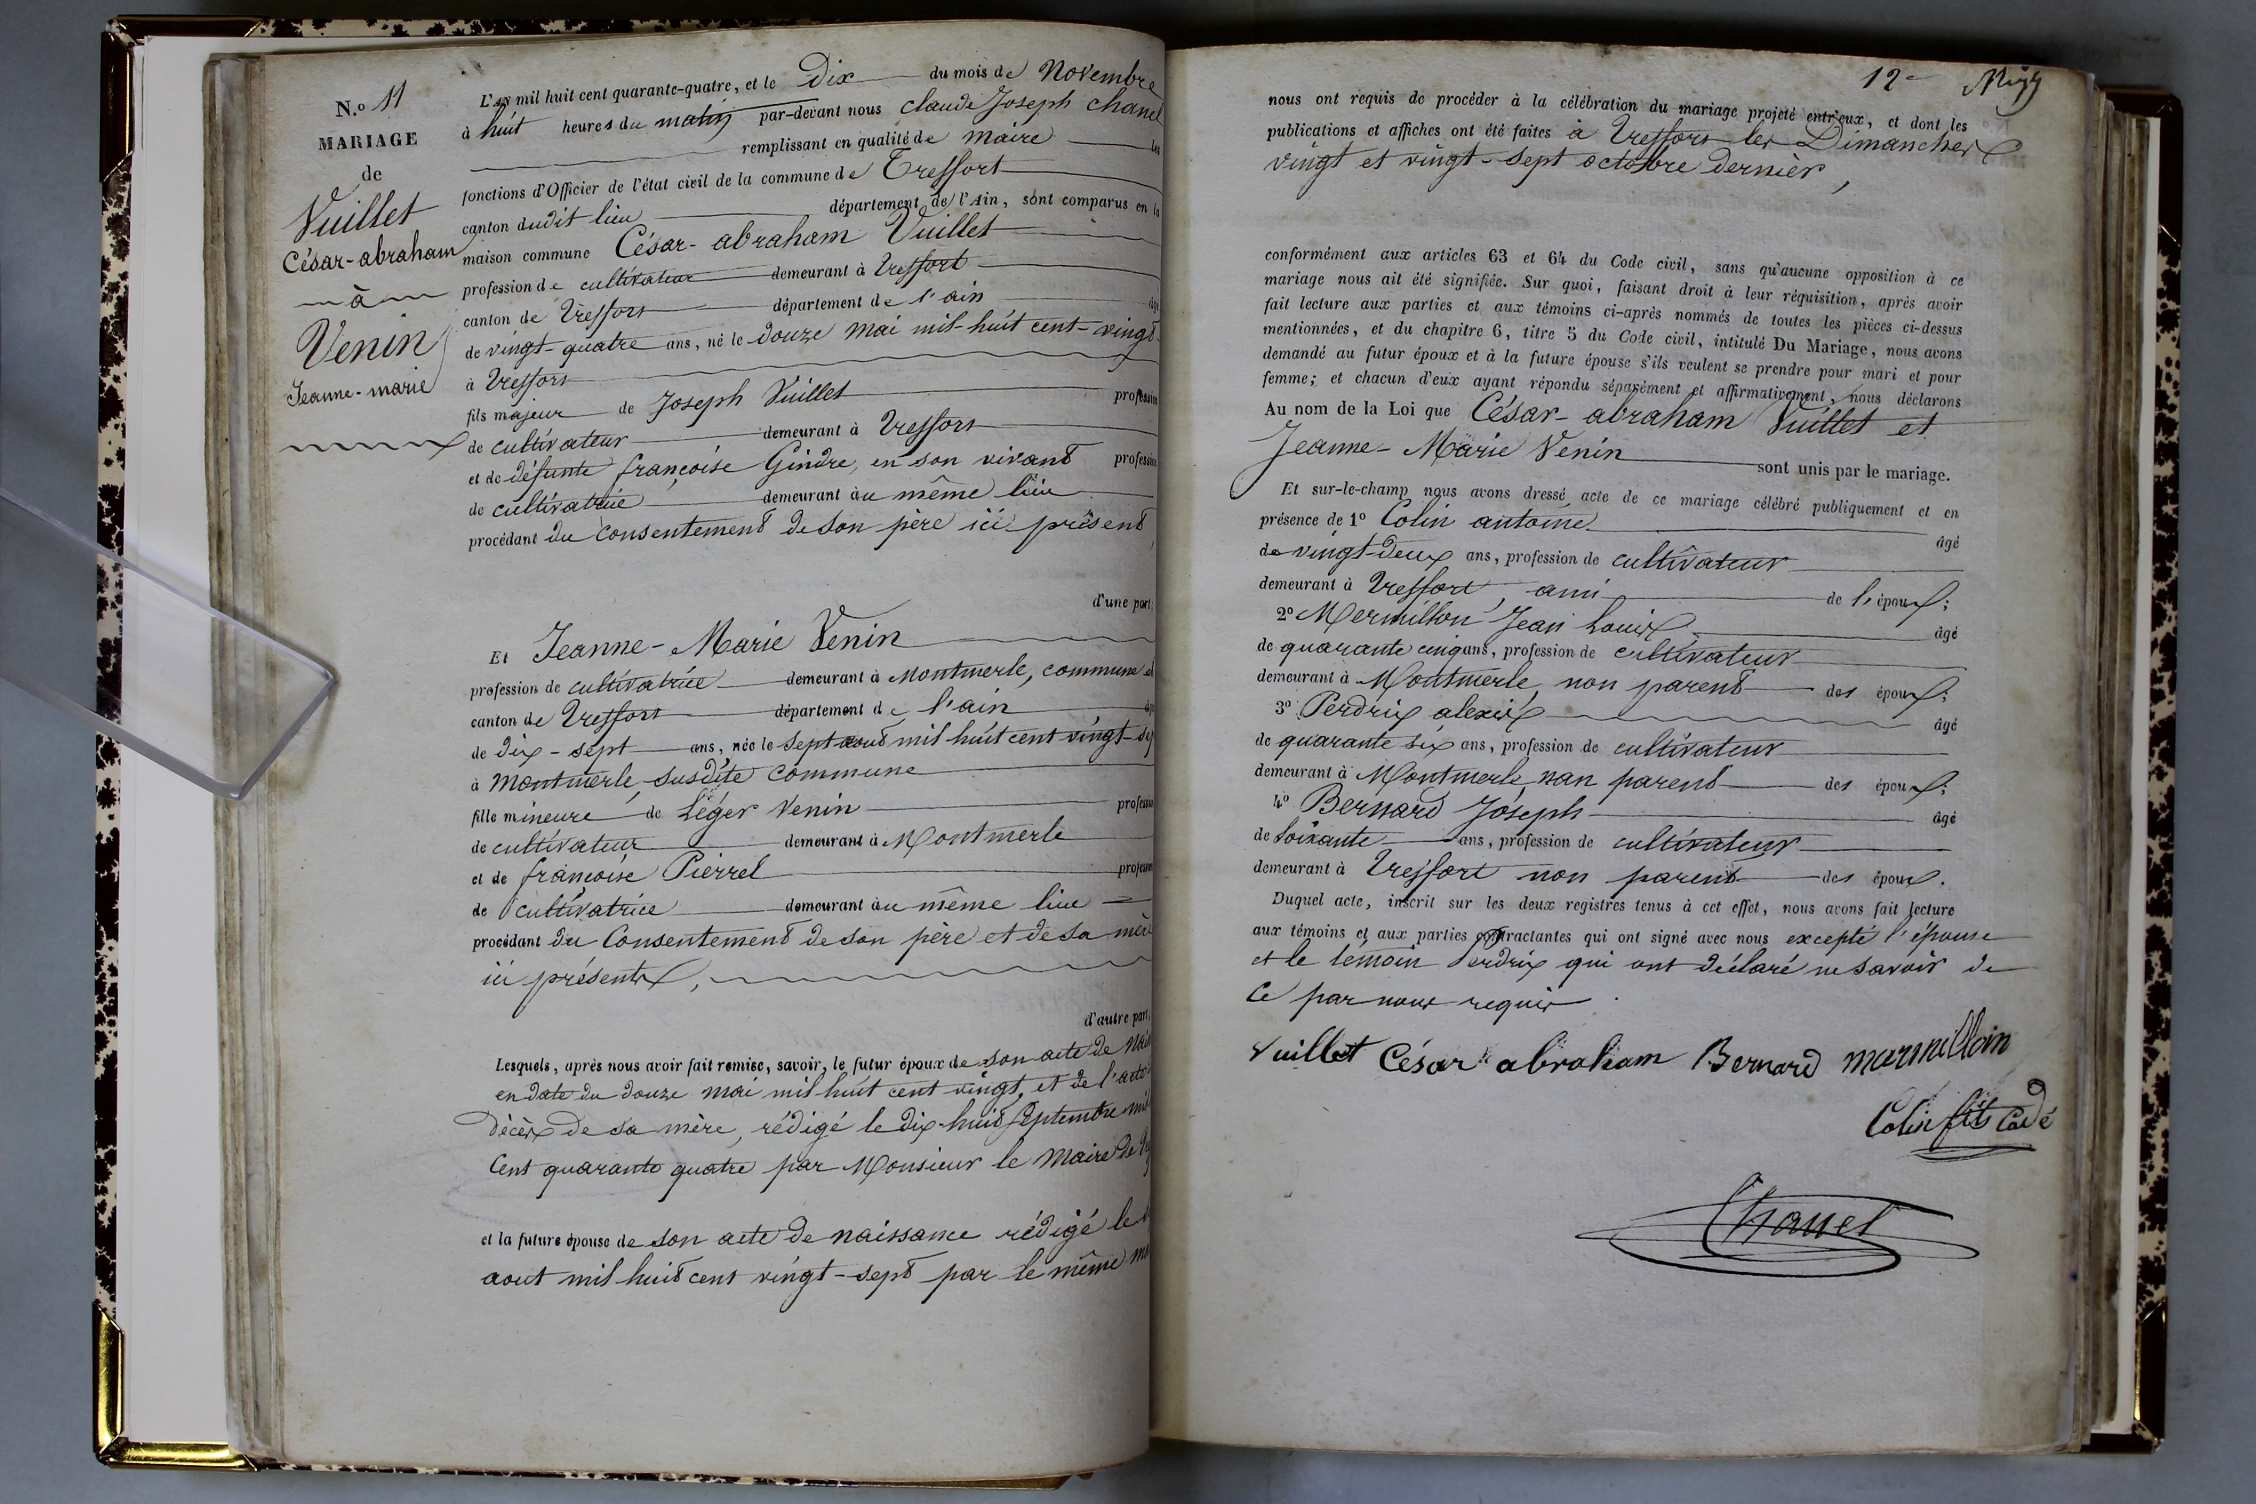 N.o 11
MARIAGE
de
Vuillet
César-abraham
à
Venin
Jeanne-marie
L'an mil huit cent quarante-quatre, et le Dix du mois de Novembre
à huit heures du matin par-devant nous claude Joseph chanel
remplissant en qualité de maire les
fonctions d'Officier de l'état civil de la commune de Treffort
canton dudit lieu département de l'Ain, sont comparus en la
maison commune César-abraham Vuillet
profession de cultivateur demeurant à Treffort
canton de Treffort département de l'ain âgé
de vingt-quatre ans, né le douze mai mil-huit cent-vingt
à Treffort
fils majeur de Joseph Vuillet profession
de cultivateur demeurant à Treffort
et de défunte françoise Gindre, en son vivant profession
de cultivatrice demeurant au même lieu
procédant du consentement de son père ici présent,
d'une part;
Et Jeanne-Marie Venin
profession de cultivatrice demeurant à Montmerle, commune et
canton de Treffort département de l'ain
de dix-sept ans, née le sept aout mil huit cent vingt-sep
à montmerle susdite commune
fille mineure de Léger Venin profession
de cultivateur demeurant à Montmerle
et de françoise Pierrel profession
de cultivatrice demeurant au même lieu
procédant du Consentement de son père et de sa mère
ici présents,
d'autre part;
Lesquels, après nous avoir fait remise, savoir, le futur époux de son acte de nais
en date du douze mai mil huit cent vingt, et de l'acte
décès de sa mère, rédigé le dix-huit septembre mil
cent quarante quatre par Monsieur le Maire de
et la future épouse de son acte de naissance rédigé le
aout mil huit cent vingt-sept par le même
12e
nous ont requis de procéder à la célébration du mariage projeté entr'eux, et dont les
publications et affiches ont été faites à Treffort les Dimanches
vingt et vingt-sept octobre dernier,
conformément aux articles 63 et 64 du Code civil, sans qu'aucune opposition à ce
mariage nous ait été signifiée. Sur quoi, faisant droit à leur réquisition, après avoir
fait lecture aux parties et aux témoins ci-après nommés de toutes les pièces ci-dessus
mentionnées, et du chapitre 6, titre 5 du Code civil, intitulé Du Mariage, nous avons
demandé au futur époux et à la future épouse s'ils veulent se prendre pour mari et pour
femme; et chacun d'eux ayant répondu séparément et affirmativement, nous déclarons
Au nom de la Loi que César-abraham Vuillet et
Jeanne-Marie Venin sont unis par le mariage.
Et sur-le-champ nous avons dressé acte de ce mariage célébré publiquement et en
présence de 1o Colin antoine âgé
de vingt-deux ans, profession de cultivateur
demeurant à Treffort, ami de l'époux;
2o Mermillon Jean Louis âgé
de quarante cinq ans, profession de cultivateur
demeurant à Montmerle, non parent des époux;
3o Perdrix alexis âgé
de quarante six ans, profession de cultivateur
demeurant à Montmerle, non parent des époux;
4o Bernard Joseph âgé
de soixante ans, profession de cultivateur
demeurant à Treffort non parent des époux.
Duquel acte, inscrit sur les deux registres tenus à cet effet, nous avons fait lecture
aux témoins et aux parties contractantes qui ont signé avec nous excepté l'épouse
et le témoin Perdrix qui ont déclaré ne savoir de
ce par nous requis.
Vuillet César abraham Bernard mermillon
Colin fils Cadé
Chanel